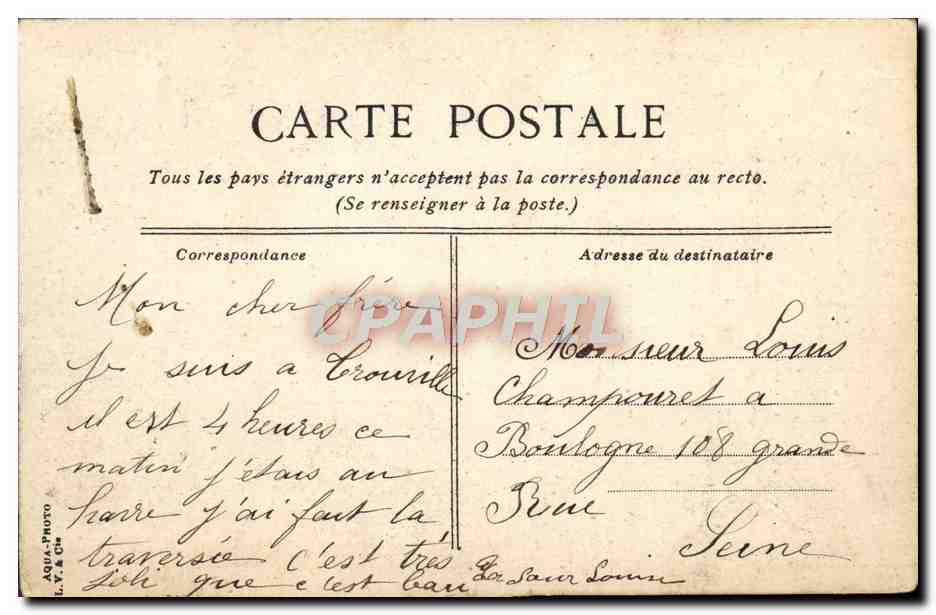 CARTE POSTALE
Tous les pays étrangers n'acceptent pas la correspondance au recto.
(Se renseigner à la poste.)
Correspondance
Mon cher frère
Je suis a Trouville
il est 4 heures ce
matin j'étais au
havre j'ai fait la
traversée c'est très
Joli que c'est beau
ta Sœur Louise
Adresse du destinataire
Monsieur Louis
Champouret a
Boulogne 108 grande
Rue
Seine
AQUA-PHOTO
L. V. & Cie
CPAPHIL